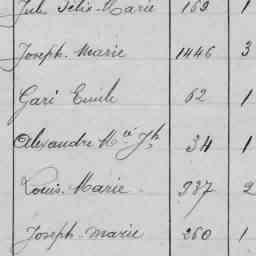 Jul. Felix-Marie 169 1
Joseph-Marie 1446 3
Gari Emile 62 1
Alexandre M.ie Jh 34 1
Louis-Marie 937 2
Joseph-Marie 260 1